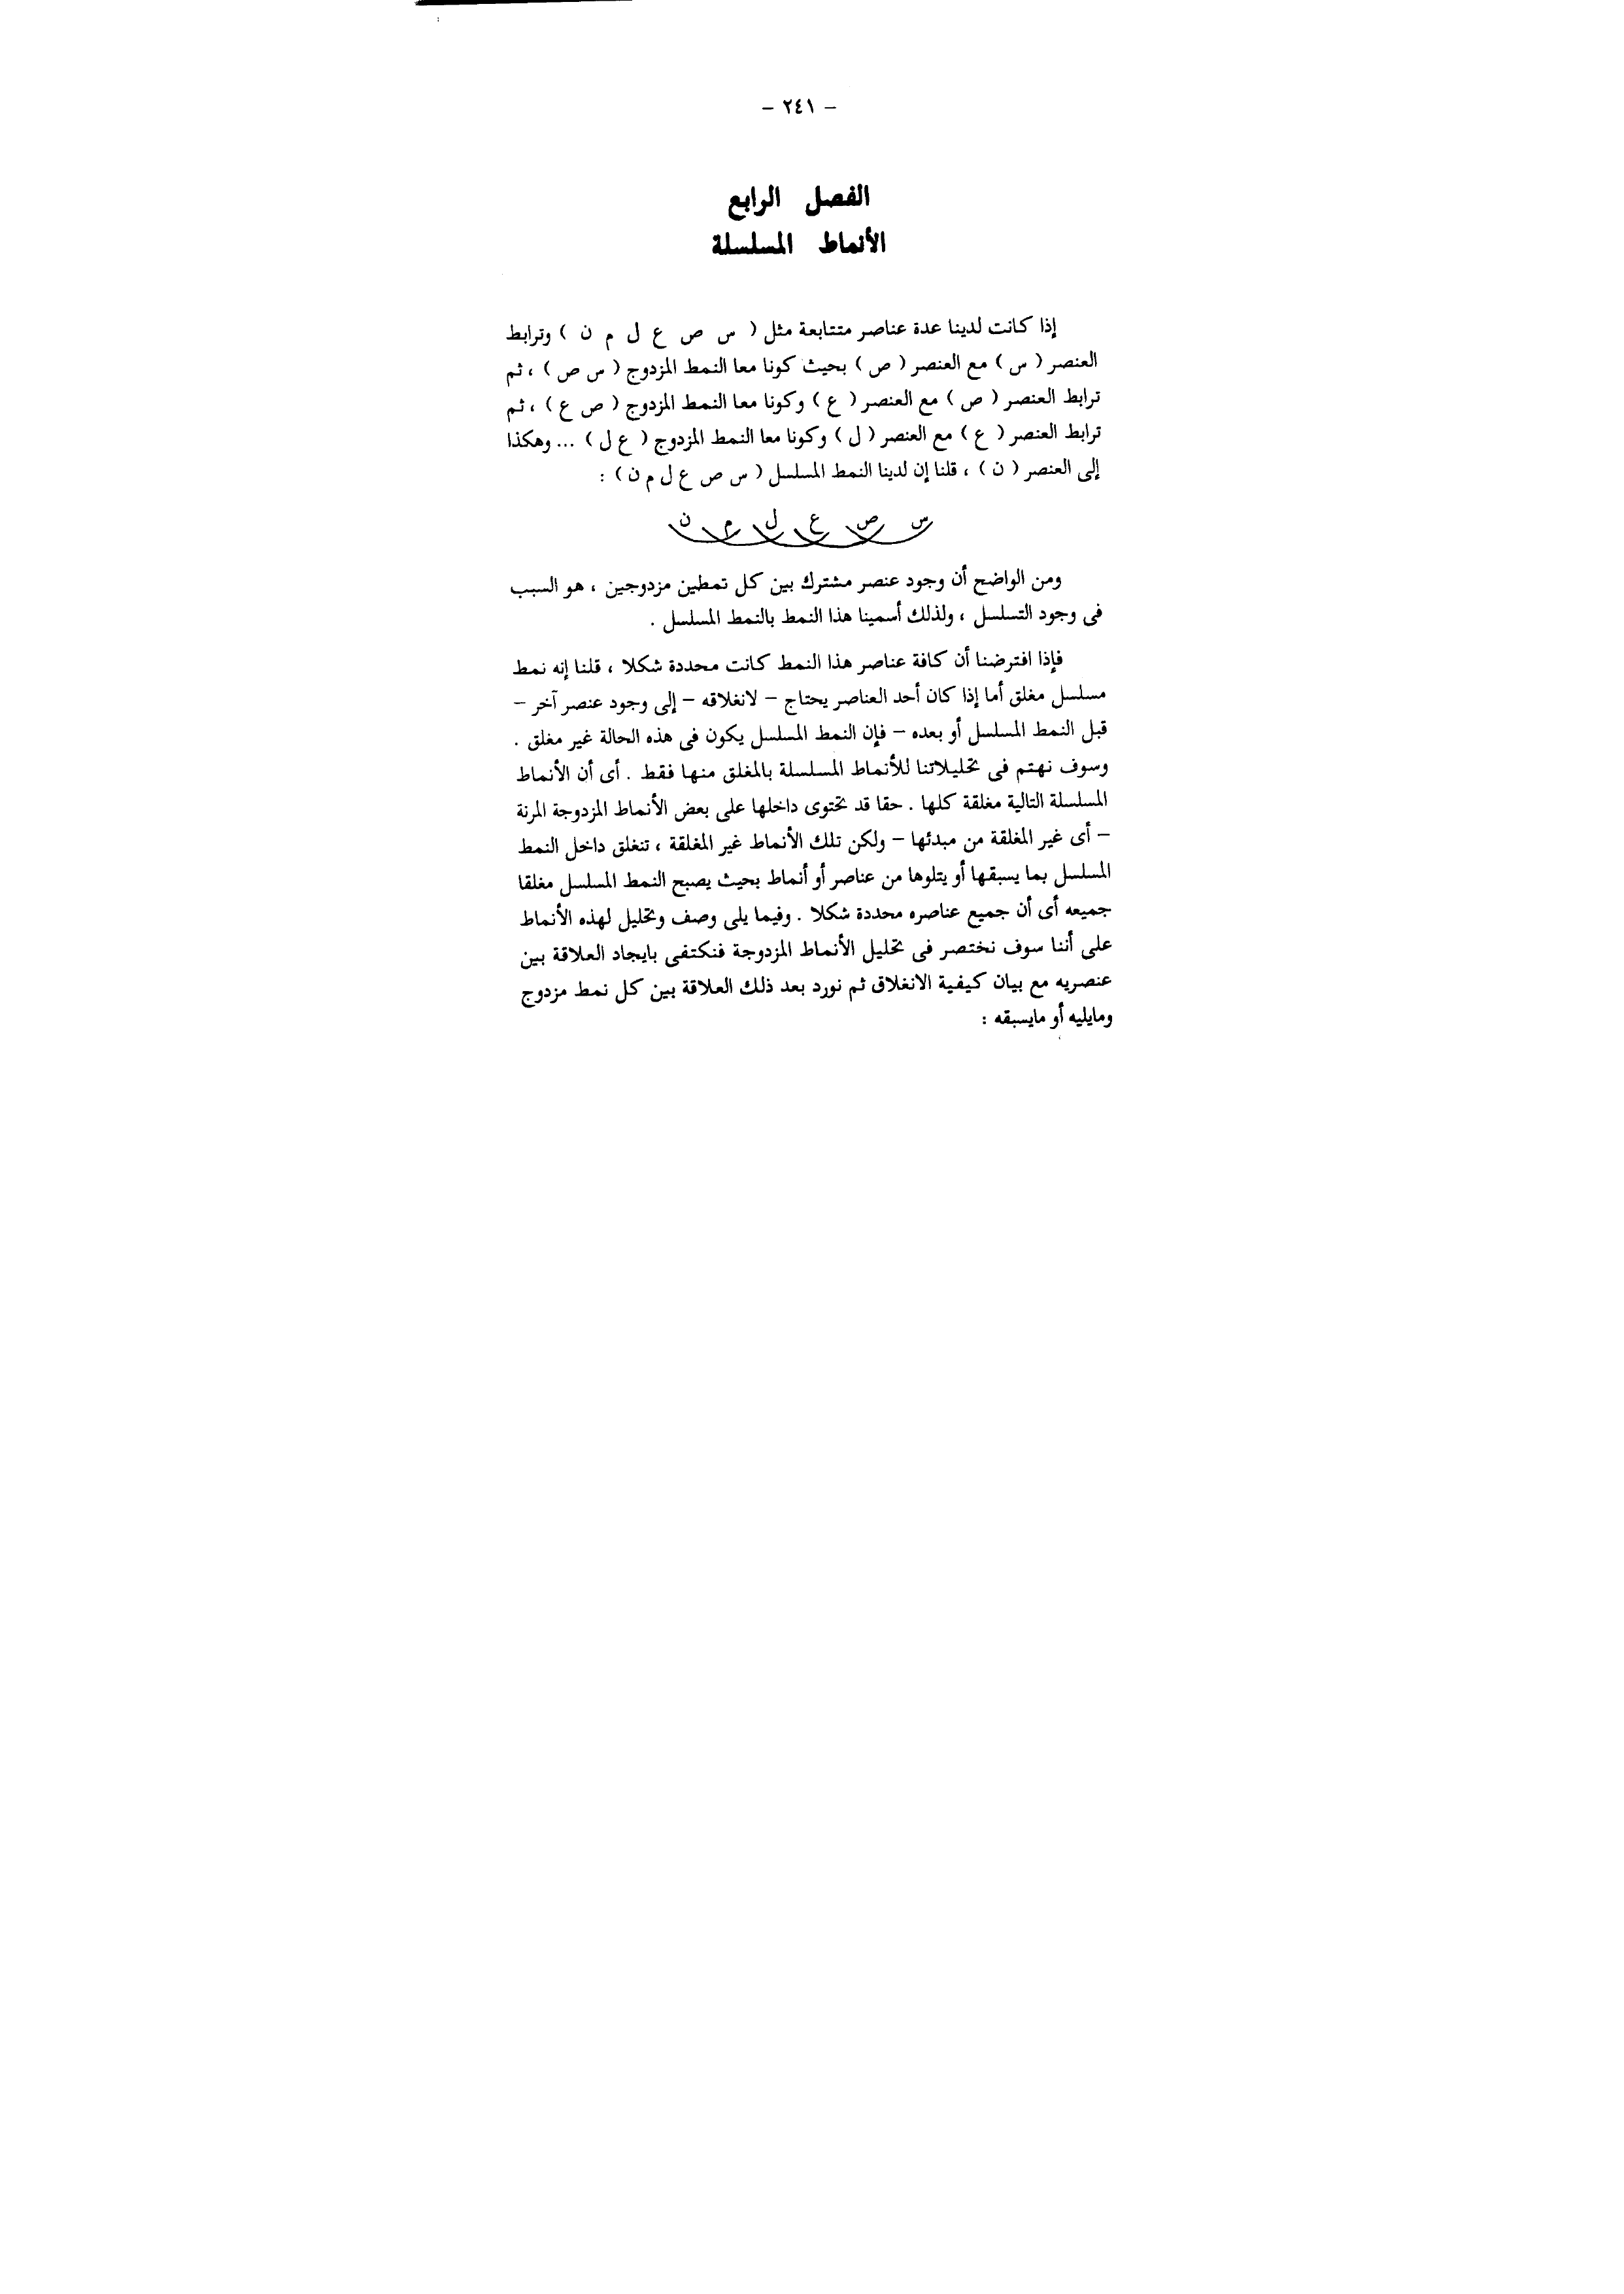 – ٢٤١ –
الفصل الرابع
الأنماط المسلسلة
إذا كانت لدينا عدة عناصر متتابعة مثل ( س ص ع ل م ن ) وترابط
العنصر ( س ) مع العنصر ( ص ) بحيث كونا معا النمط المزدوج ( س ص ) ، ثم
ترابط العنصر ( ص ) مع العنصر ( ع ) وكونا معا النمط المزدوج ( ص ع ) ، ثم
ترابط العنصر ( ع ) مع العنصر ( ل ) وكونا معا النمط المزدوج ( ع ل ) ... وهكذا
إلى العنصر ( ن ) ، قلنا إن لدينا النمط المسلسل ( س ص ع ل م ن ) :
س ص ع ل م ن
ومن الواضح أن وجود عنصر مشترك بين كل نمطين مزدوجين ، هو السبب
فى وجود التسلسل ، ولذلك أسمينا هذا النمط بالنمط المسلسل .
فإذا افترضنا أن كافة عناصر هذا النمط كانت محددة شكلا ، قلنا إنه نمط
مسلسل مغلق أما إذا كان أحد العناصر يحتاج – لانغلاقه – إلى وجود عنصر آخر –
قبل النمط المسلسل أو بعده – فإن النمط المسلسل يكون فى هذه الحالة غير مغلق .
وسوف نهتم فى تحليلاتنا للأنماط المسلسلة بالمغلق منها فقط . أى أن الأنماط
المسلسلة التالية مغلقة كلها . حقا قد تحتوى داخلها على بعض الأنماط المزدوجة المرنة
– أى غير المغلقة من مبدئها – ولكن تلك الأنماط غير المغلقة ، تنغلق داخل النمط
المسلسل بما يسبقها أو يتلوها من عناصر أو أنماط بحيث يصبح النمط المسلسل مغلقا
جميعه أى أن جميع عناصره محددة شكلا . وفيما يلى وصف وتحليل لهذه الأنماط
على أننا سوف نختصر فى تحليل الأنماط المزدوجة فنكتفى بايجاد العلاقة بين
عنصريه مع بيان كيفية الانغلاق ثم نورد بعد ذلك العلاقة بين كل نمط مزدوج
ومايليه أو مايسبقه :